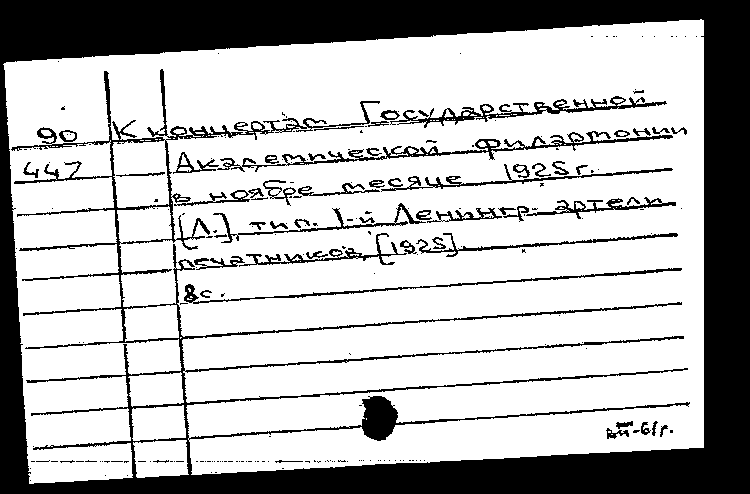 90 К концертам Государственной
447 Академической филармонии
в ноябре месяце 1925 г.
[Л.], тип. 1-й Ленингр. артели
печатников, [1925].
8 с.